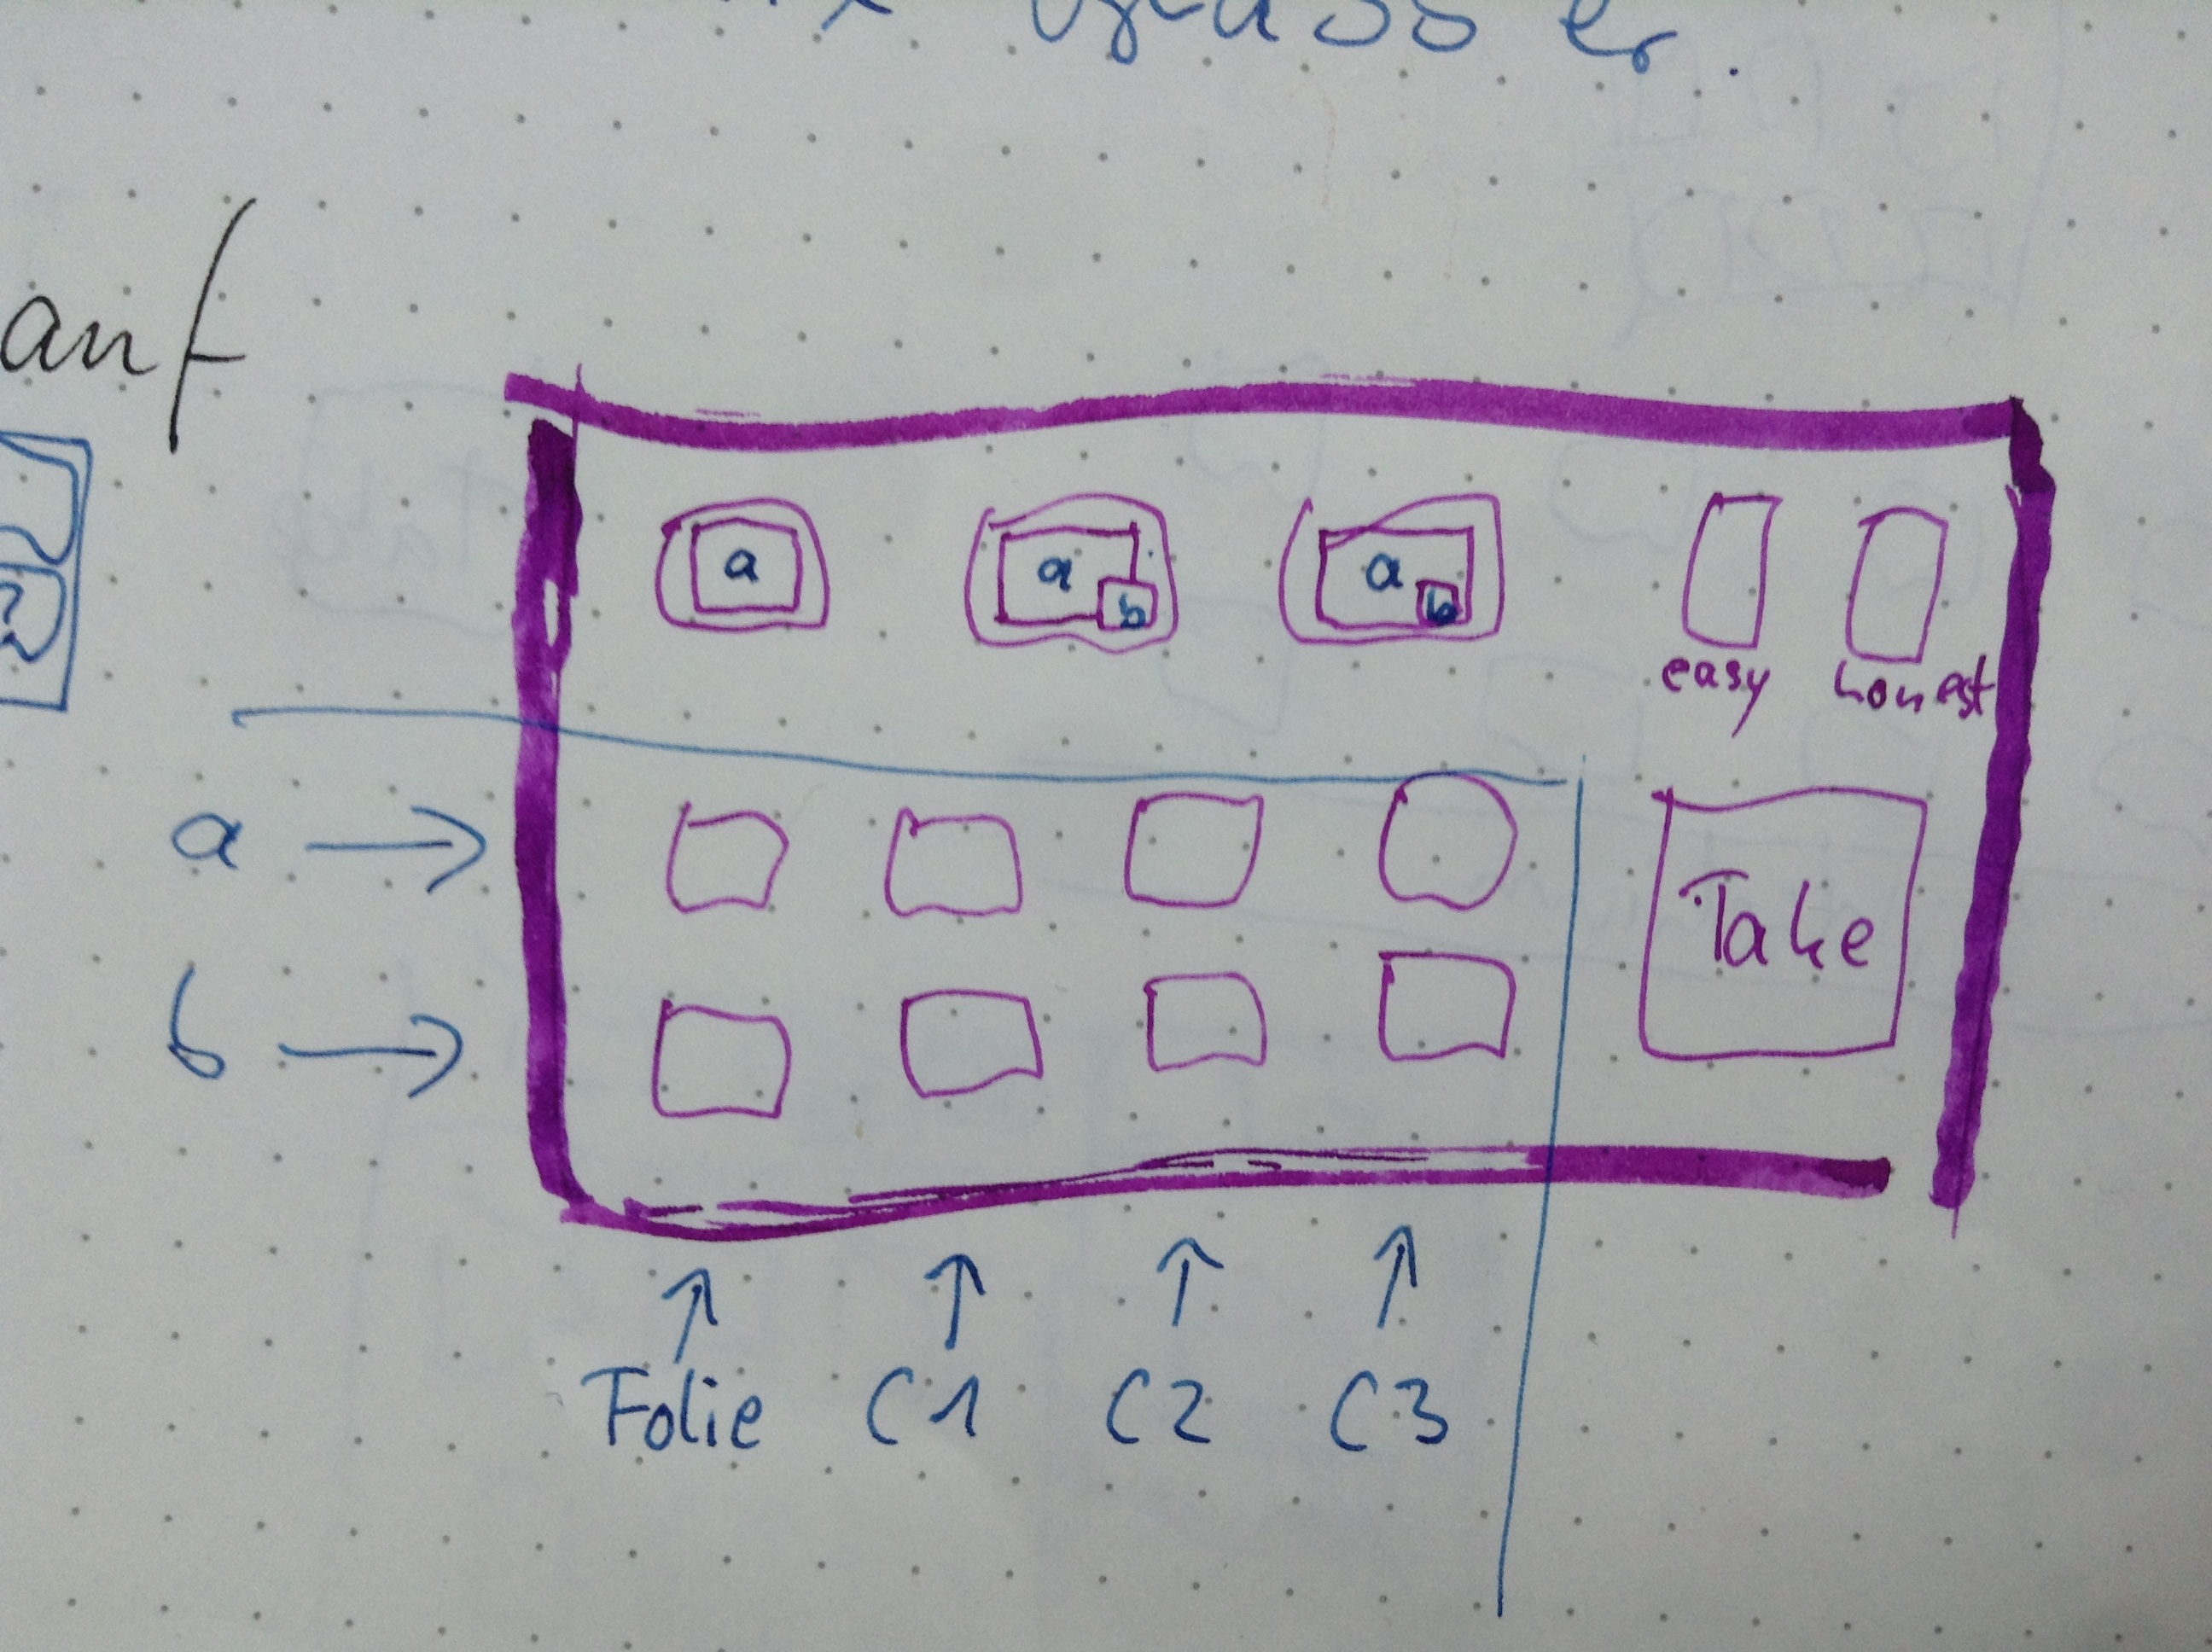 a a b a b
easy honest
a
Take
b
Folie C1 C2 C3